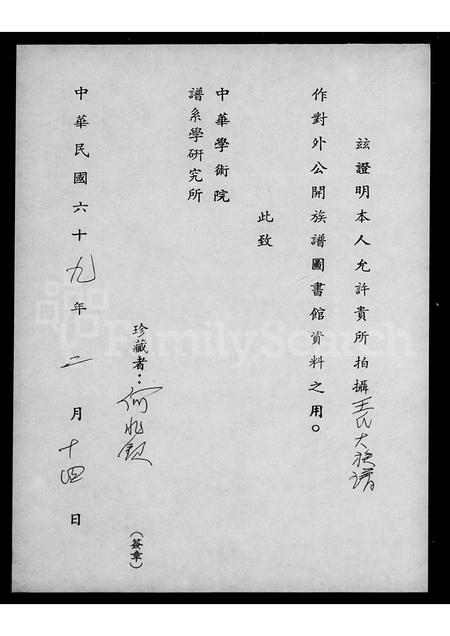 茲證明本人允許貴所拍攝王氏大族譜
作對外公開族譜圖書館資料之用。
此致
中華學術院
譜系學研究所
珍藏者：何兆欽
（簽章）
中華民國六十九年二月十四日
FamilySearch